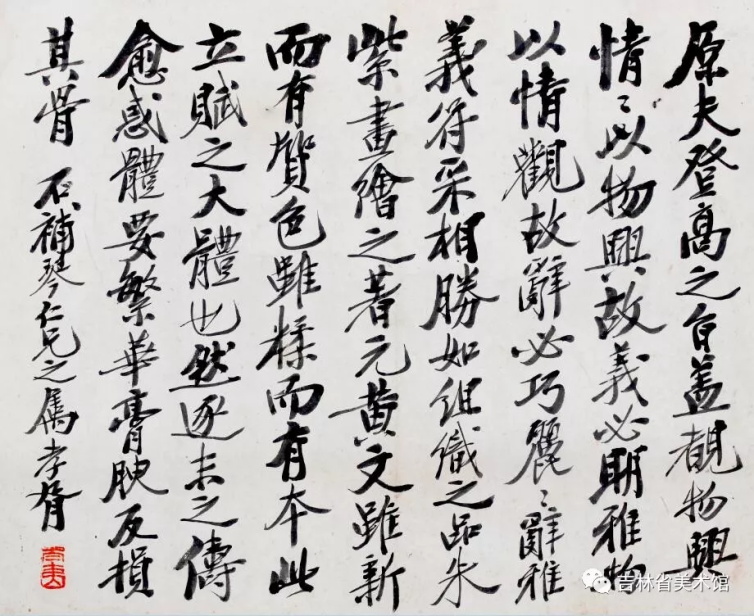 原夫登高之旨蓋覩物興
情〻以物興故義必明雅物
以情觀故辭必巧麗〻辭雅
義符采相勝如組織之品朱
紫畫繪之著元黃文雖新
而有質色雖糅而有本此
立賦之大體也然逐末之儔
愈惑體要繁華膏腴反損
其骨 補琴仁兄之屬孝胥
吉林省美术馆